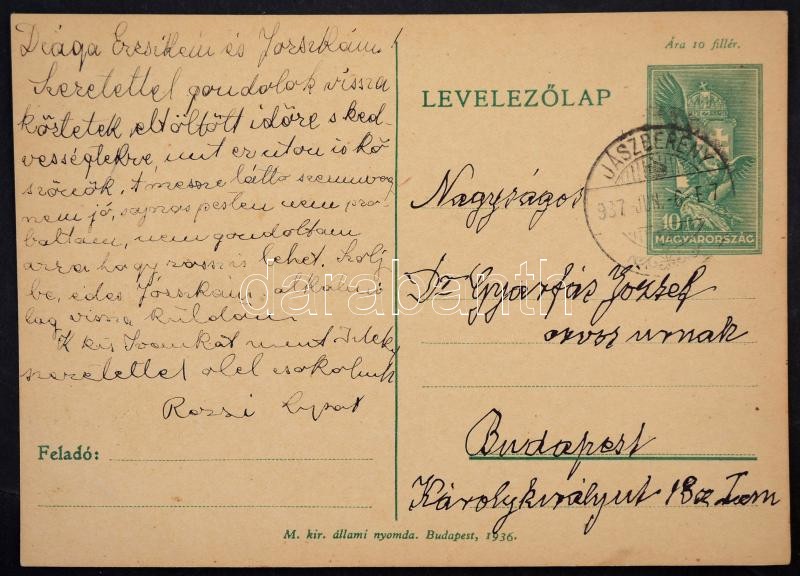 Drága Ercsikém és Jorszkám!
Szeretettel gondolok vissza
köztetek eltöltött időre s ked-
vességtekre, mit ez úton is kö
szönök. A messze látó szemüveg
nem jó, sajnos pesten nem pro-
báltam, nem gondoltam
arra hogy rossz is lehet. Szólj
be, édes Jószkám, alkalmi
lag vissza küldöm.
K kis Ivánkát mint Titek
szeretettel ölel csókolunk
Rozsi
Feladó:
LEVELEZŐLAP
Ára 10 fillér.
JÁSZBERÉNY
937 JUN. -6.
10
MAGYARORSZÁG
Nagyságos
Dr Gyárfás József
orvos urnak
Budapest
Károlykirályut 13a I em
M. kir. állami nyomda. Budapest, 1936.
darabanth